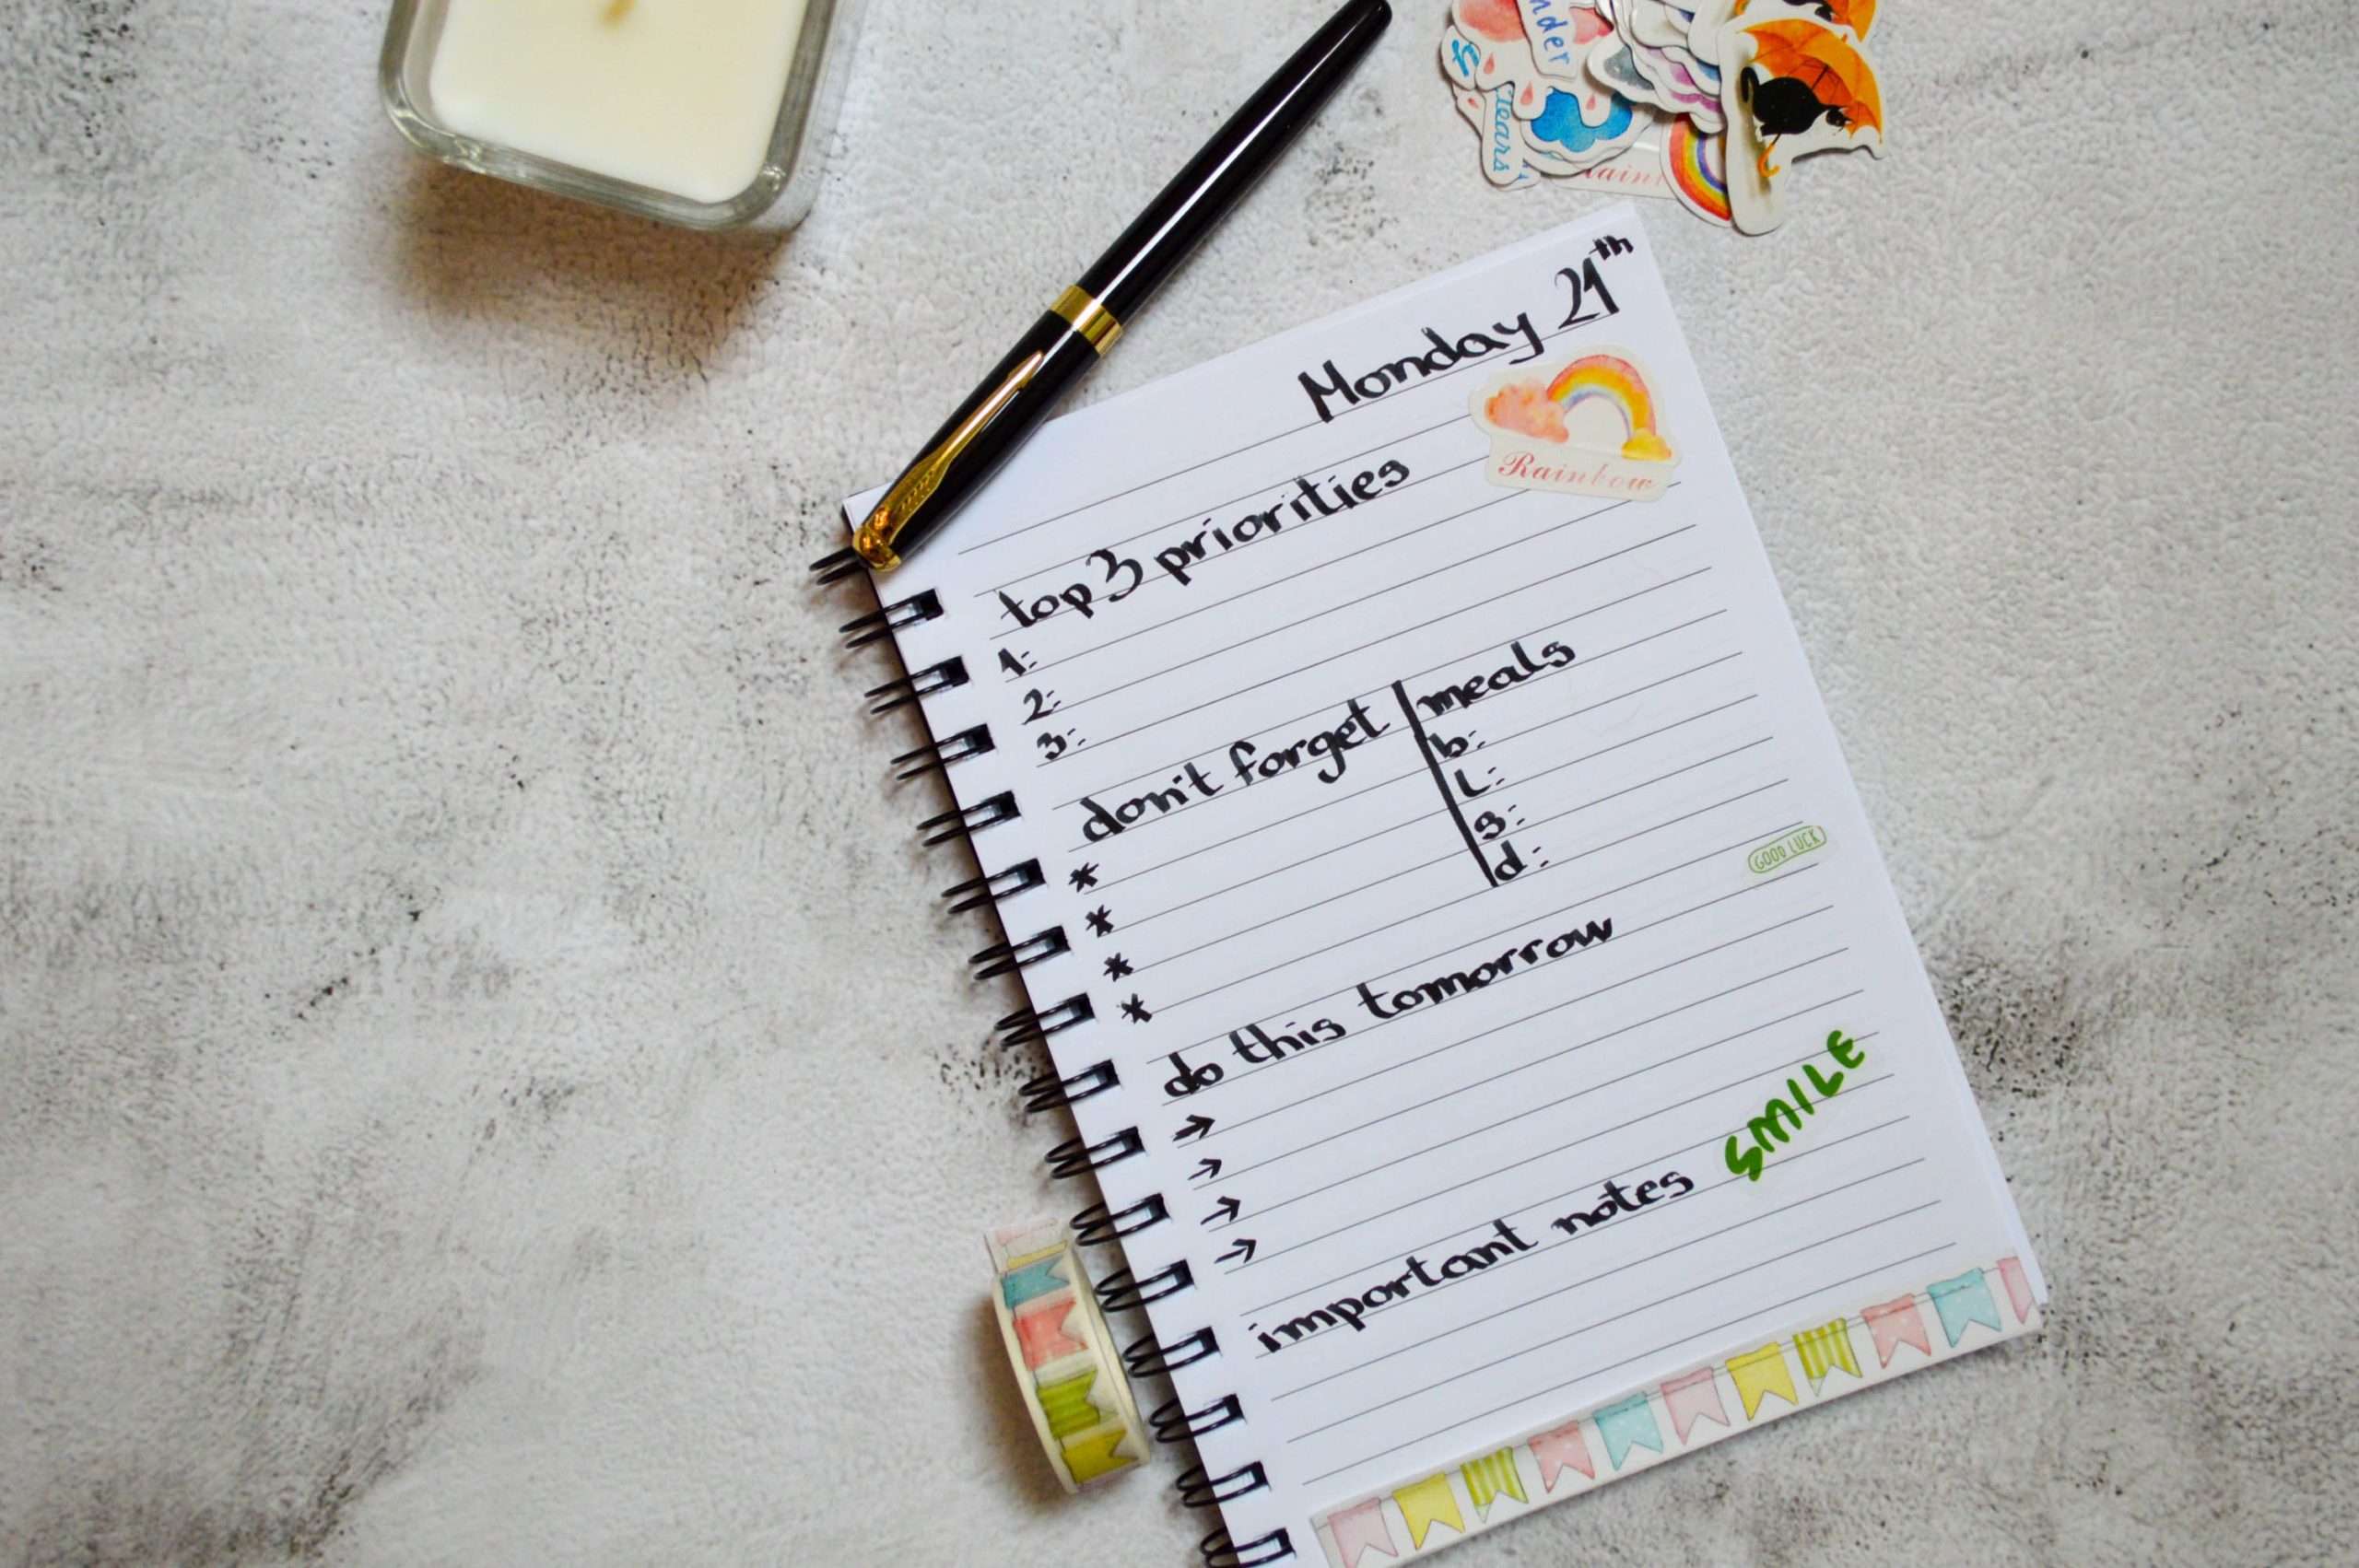 nder
tears
Monday 21th
Rainbow
top 3 priorities
1:
2:
3:
don't forget
*
*
*
*
meals
b:
l:
s:
d:
GOOD LUCK
do this tomorrow
→
→
→
→
important notes
SMILE